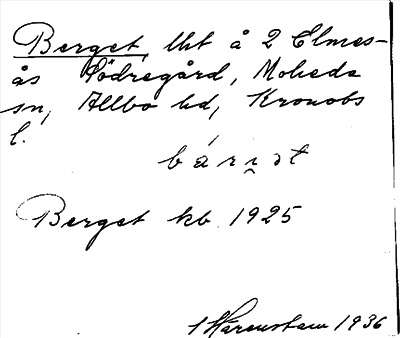 Berget, lht å 2 Elmes-
ås Södregård, Moheda
sn, Allbo hd, Kronobs
l.
bárı̯ət
Berget kb. 1925
1936